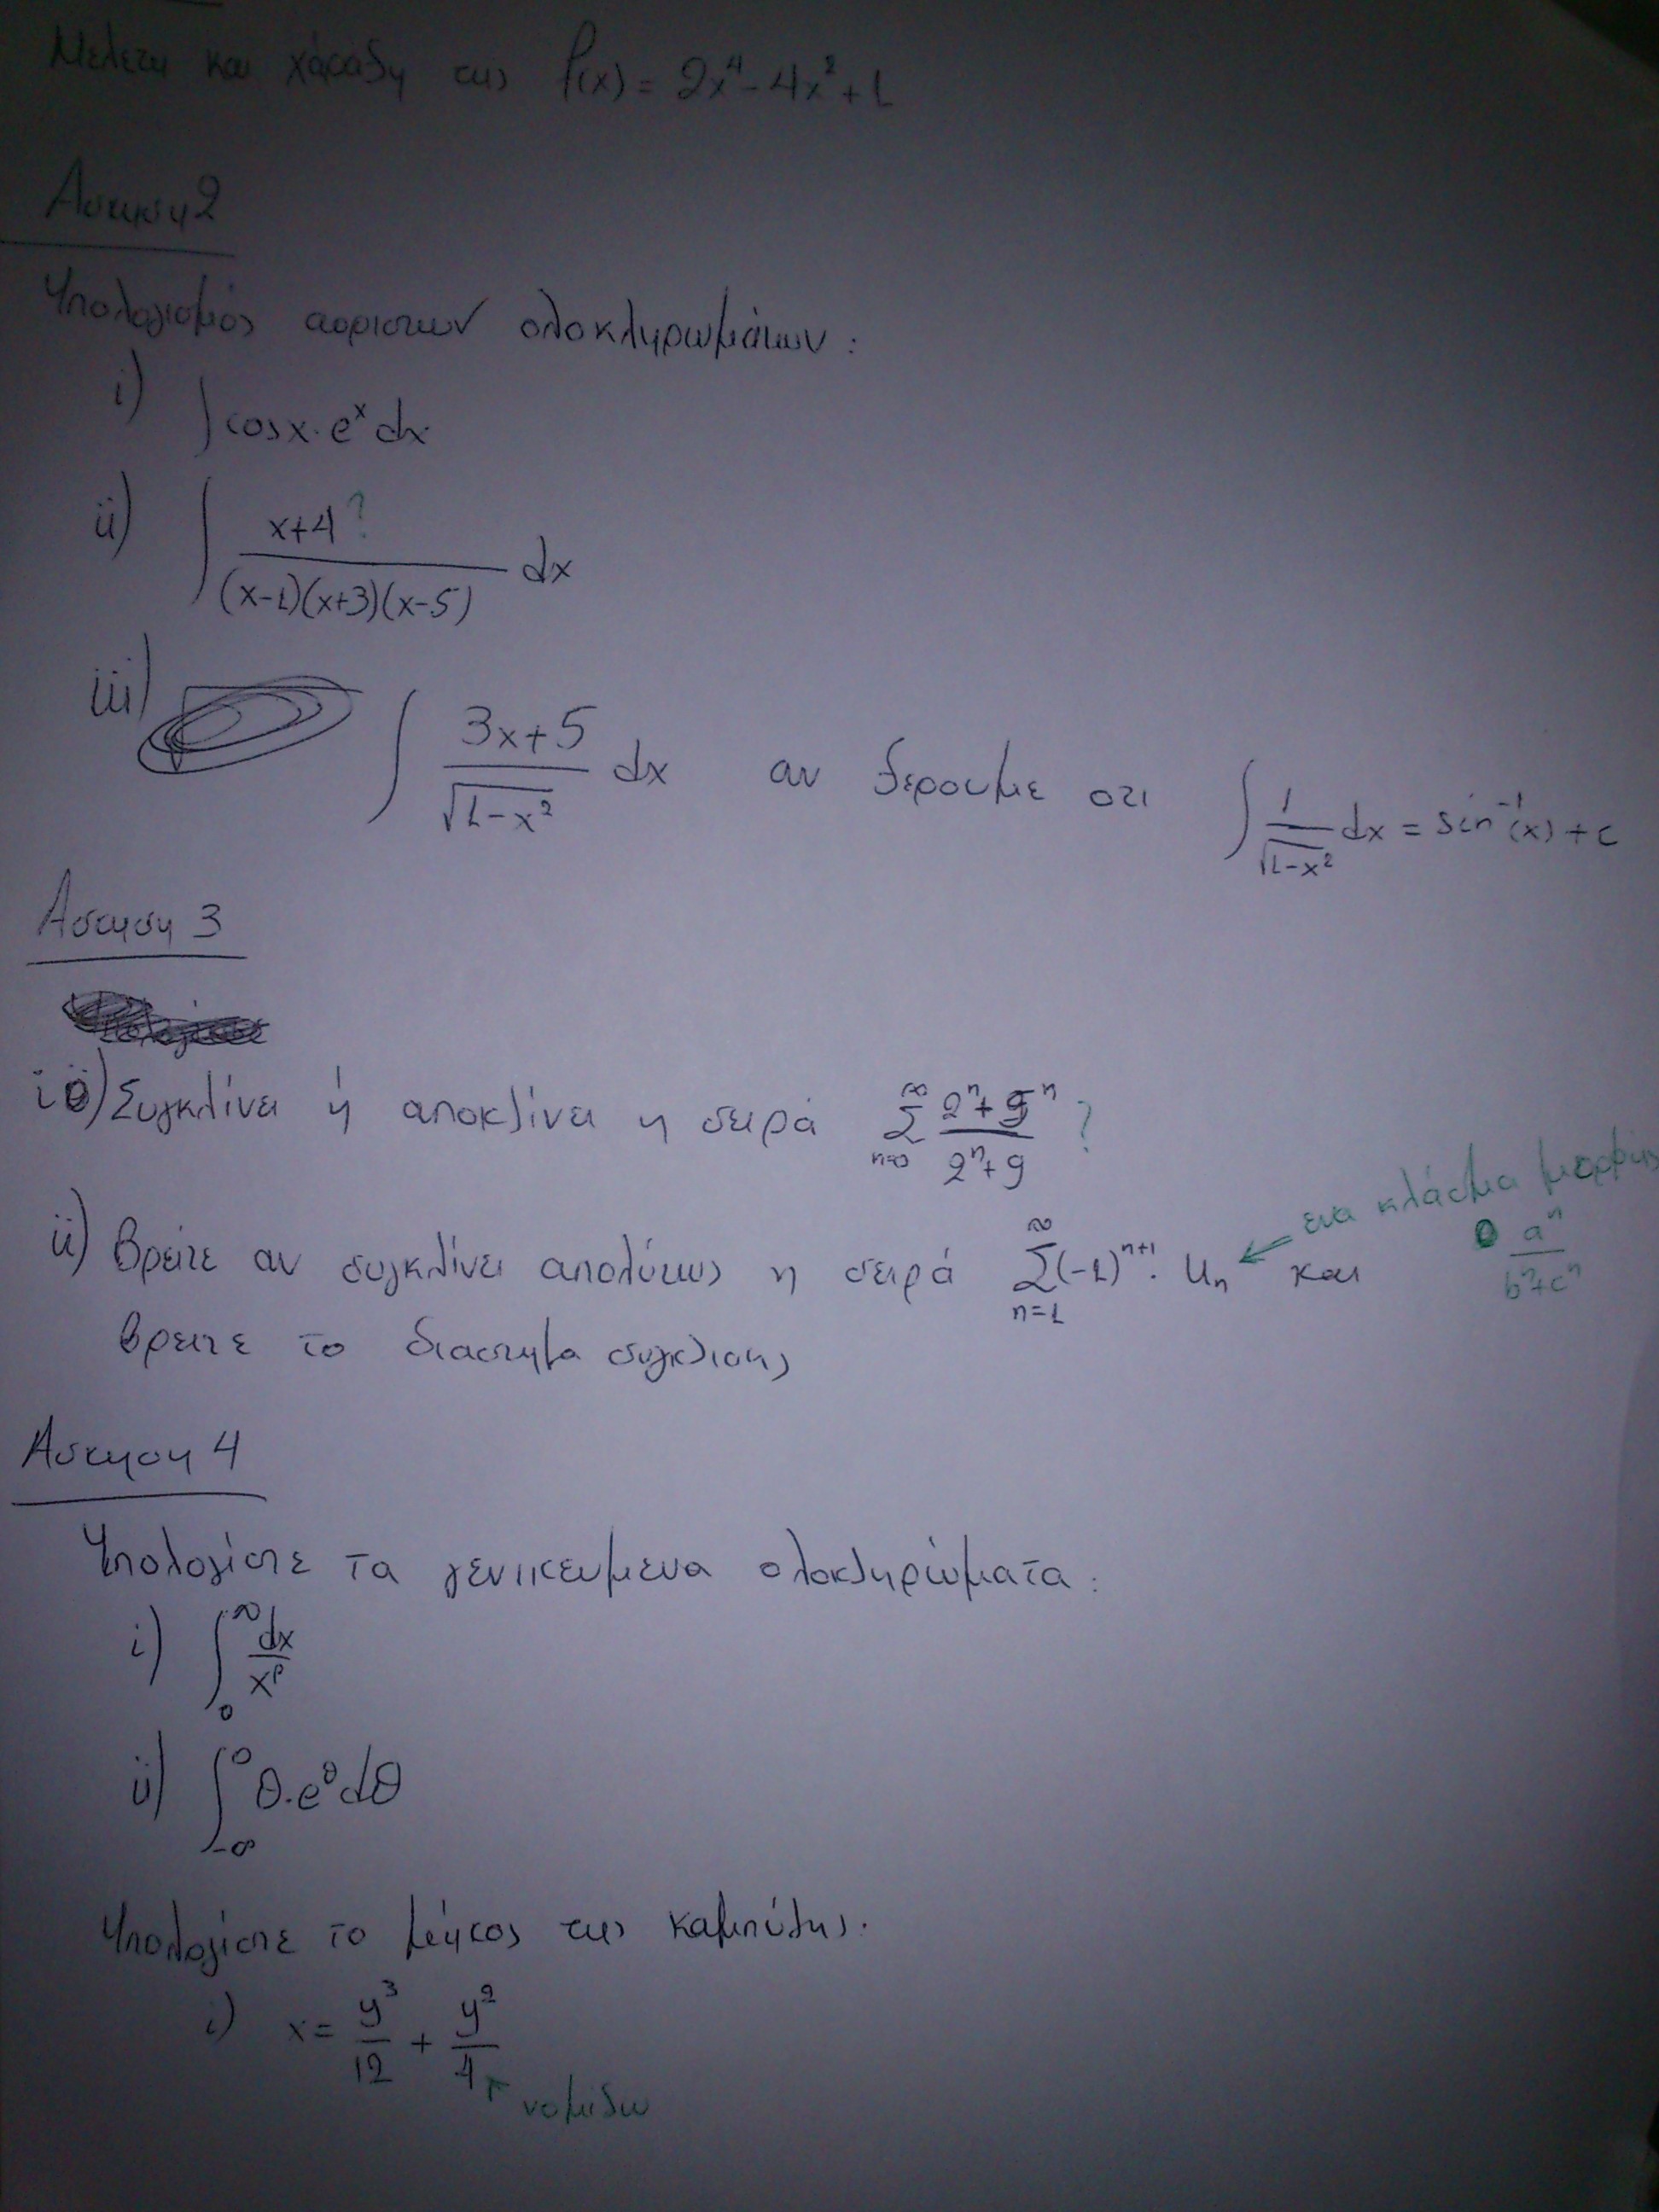 Μελετη και χάραξη της f(x) = 2x⁴ - 4x² + 1
Ασκηση 2
Υπολογισμός αοριστων ολοκληρωμάτων :
i) ∫ cosx · eˣ dx
ii) ∫ (x+4 ?)/((x-1)(x+3)(x-5)) dx
iii) ∫ (3x+5)/√(1-x²) dx αν ξερουμε οτι ∫ 1/√(1-x²) dx = sin⁻¹(x) + c
Ασκηση 3
i) Συγκλίνει ή αποκλίνει η σειρά ∑_{n=0}^{∞} (2ⁿ + 9ⁿ)/(2ⁿ + 9) ?
ii) Βρείτε αν συγκλίνει απολύτως η σειρά ∑_{n=1}^{∞} (-1)ⁿ⁺¹ · uₙ ← ενα κλάσμα μορφής aⁿ/(bⁿ+cⁿ) και
βρειτε το διαστημα συγκλισης
Ασκηση 4
Υπολογίστε τα γενικευμενα ολοκληρώματα :
i) ∫₀^∞ dx/xᵖ
ii) ∫_{-∞}^0 θ·e^θ dθ
Υπολογίστε το μήκος της καμπύλης.
i) x = y³/12 + y²/4 νομιζω